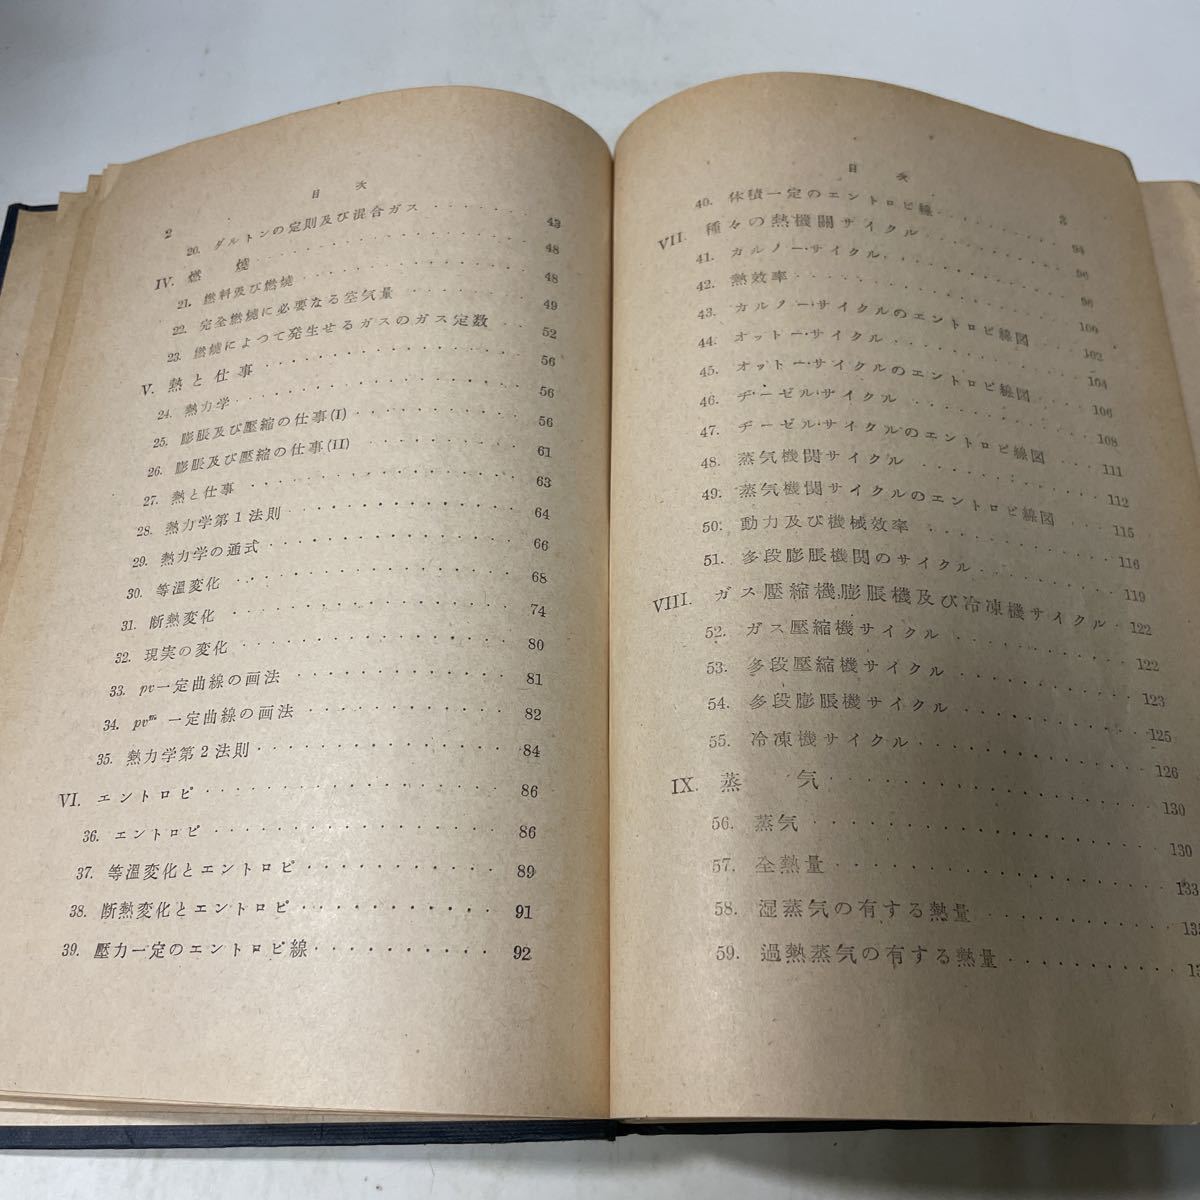 目次
2
20. ダルトンの定則及び混合ガス 43
IV. 燃燒 48
21. 燃料及び燃燒 48
22. 完全燃燒に必要なる空気量 49
23. 燃燒によつて発生せるガスのガス定数 52
V. 熱と仕事 56
24. 熱力学 56
25. 膨脹及び壓縮の仕事(I) 56
26. 膨脹及び壓縮の仕事(II) 61
27. 熱と仕事 63
28. 熱力学第1法則 64
29. 熱力学の通式 66
30. 等溫変化 68
31. 断熱変化 74
32. 現実の変化 80
33. pv一定曲線の画法 81
34. pvᵐ 一定曲線の画法 82
35. 熱力学第2法則 84
VI. エントロピ 86
36. エントロピ 86
37. 等溫変化とエントロピ 89
38. 断熱変化とエントロピ 91
39. 壓力一定のエントロピ線 92
目次
3
40. 体積一定のエントロピ線 94
VII. 種々の熱機關サイクル 96
41. カルノー・サイクル 96
42. 熱效率 100
43. カルノー・サイクルのエントロピ線図 102
44. オットー・サイクル 104
45. オットー・サイクルのエントロピ線図 106
46. ヂーゼル・サイクル 108
47. ヂーゼル・サイクルのエントロピ線図 111
48. 蒸気機関サイクル 112
49. 蒸気機関サイクルのエントロピ線図 115
50. 動力及び機械效率 116
51. 多段膨脹機関のサイクル 119
VIII. ガス壓縮機,膨脹機及び冷凍機サイクル 122
52. ガス壓縮機サイクル 122
53. 多段壓縮機サイクル 123
54. 多段膨脹機サイクル 125
55. 冷凍機サイクル 126
IX. 蒸気 130
56. 蒸気 130
57. 全熱量 133
58. 湿蒸気の有する熱量
59. 過熱蒸気の有する熱量